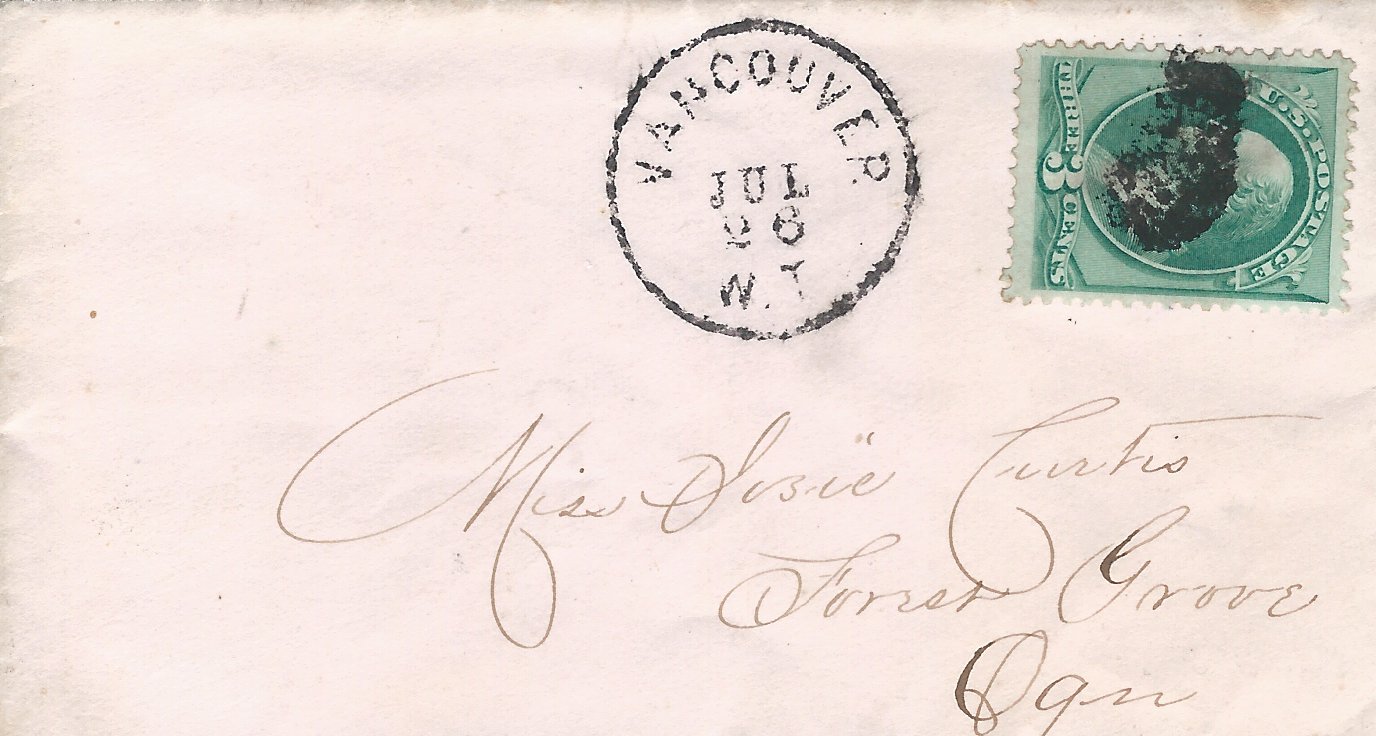 VANCOUVER
JUL
26
W.T
U.S. POSTAGE
THREE 3 CENTS
Miss Josie Curtis
Forest Grove
Ogn